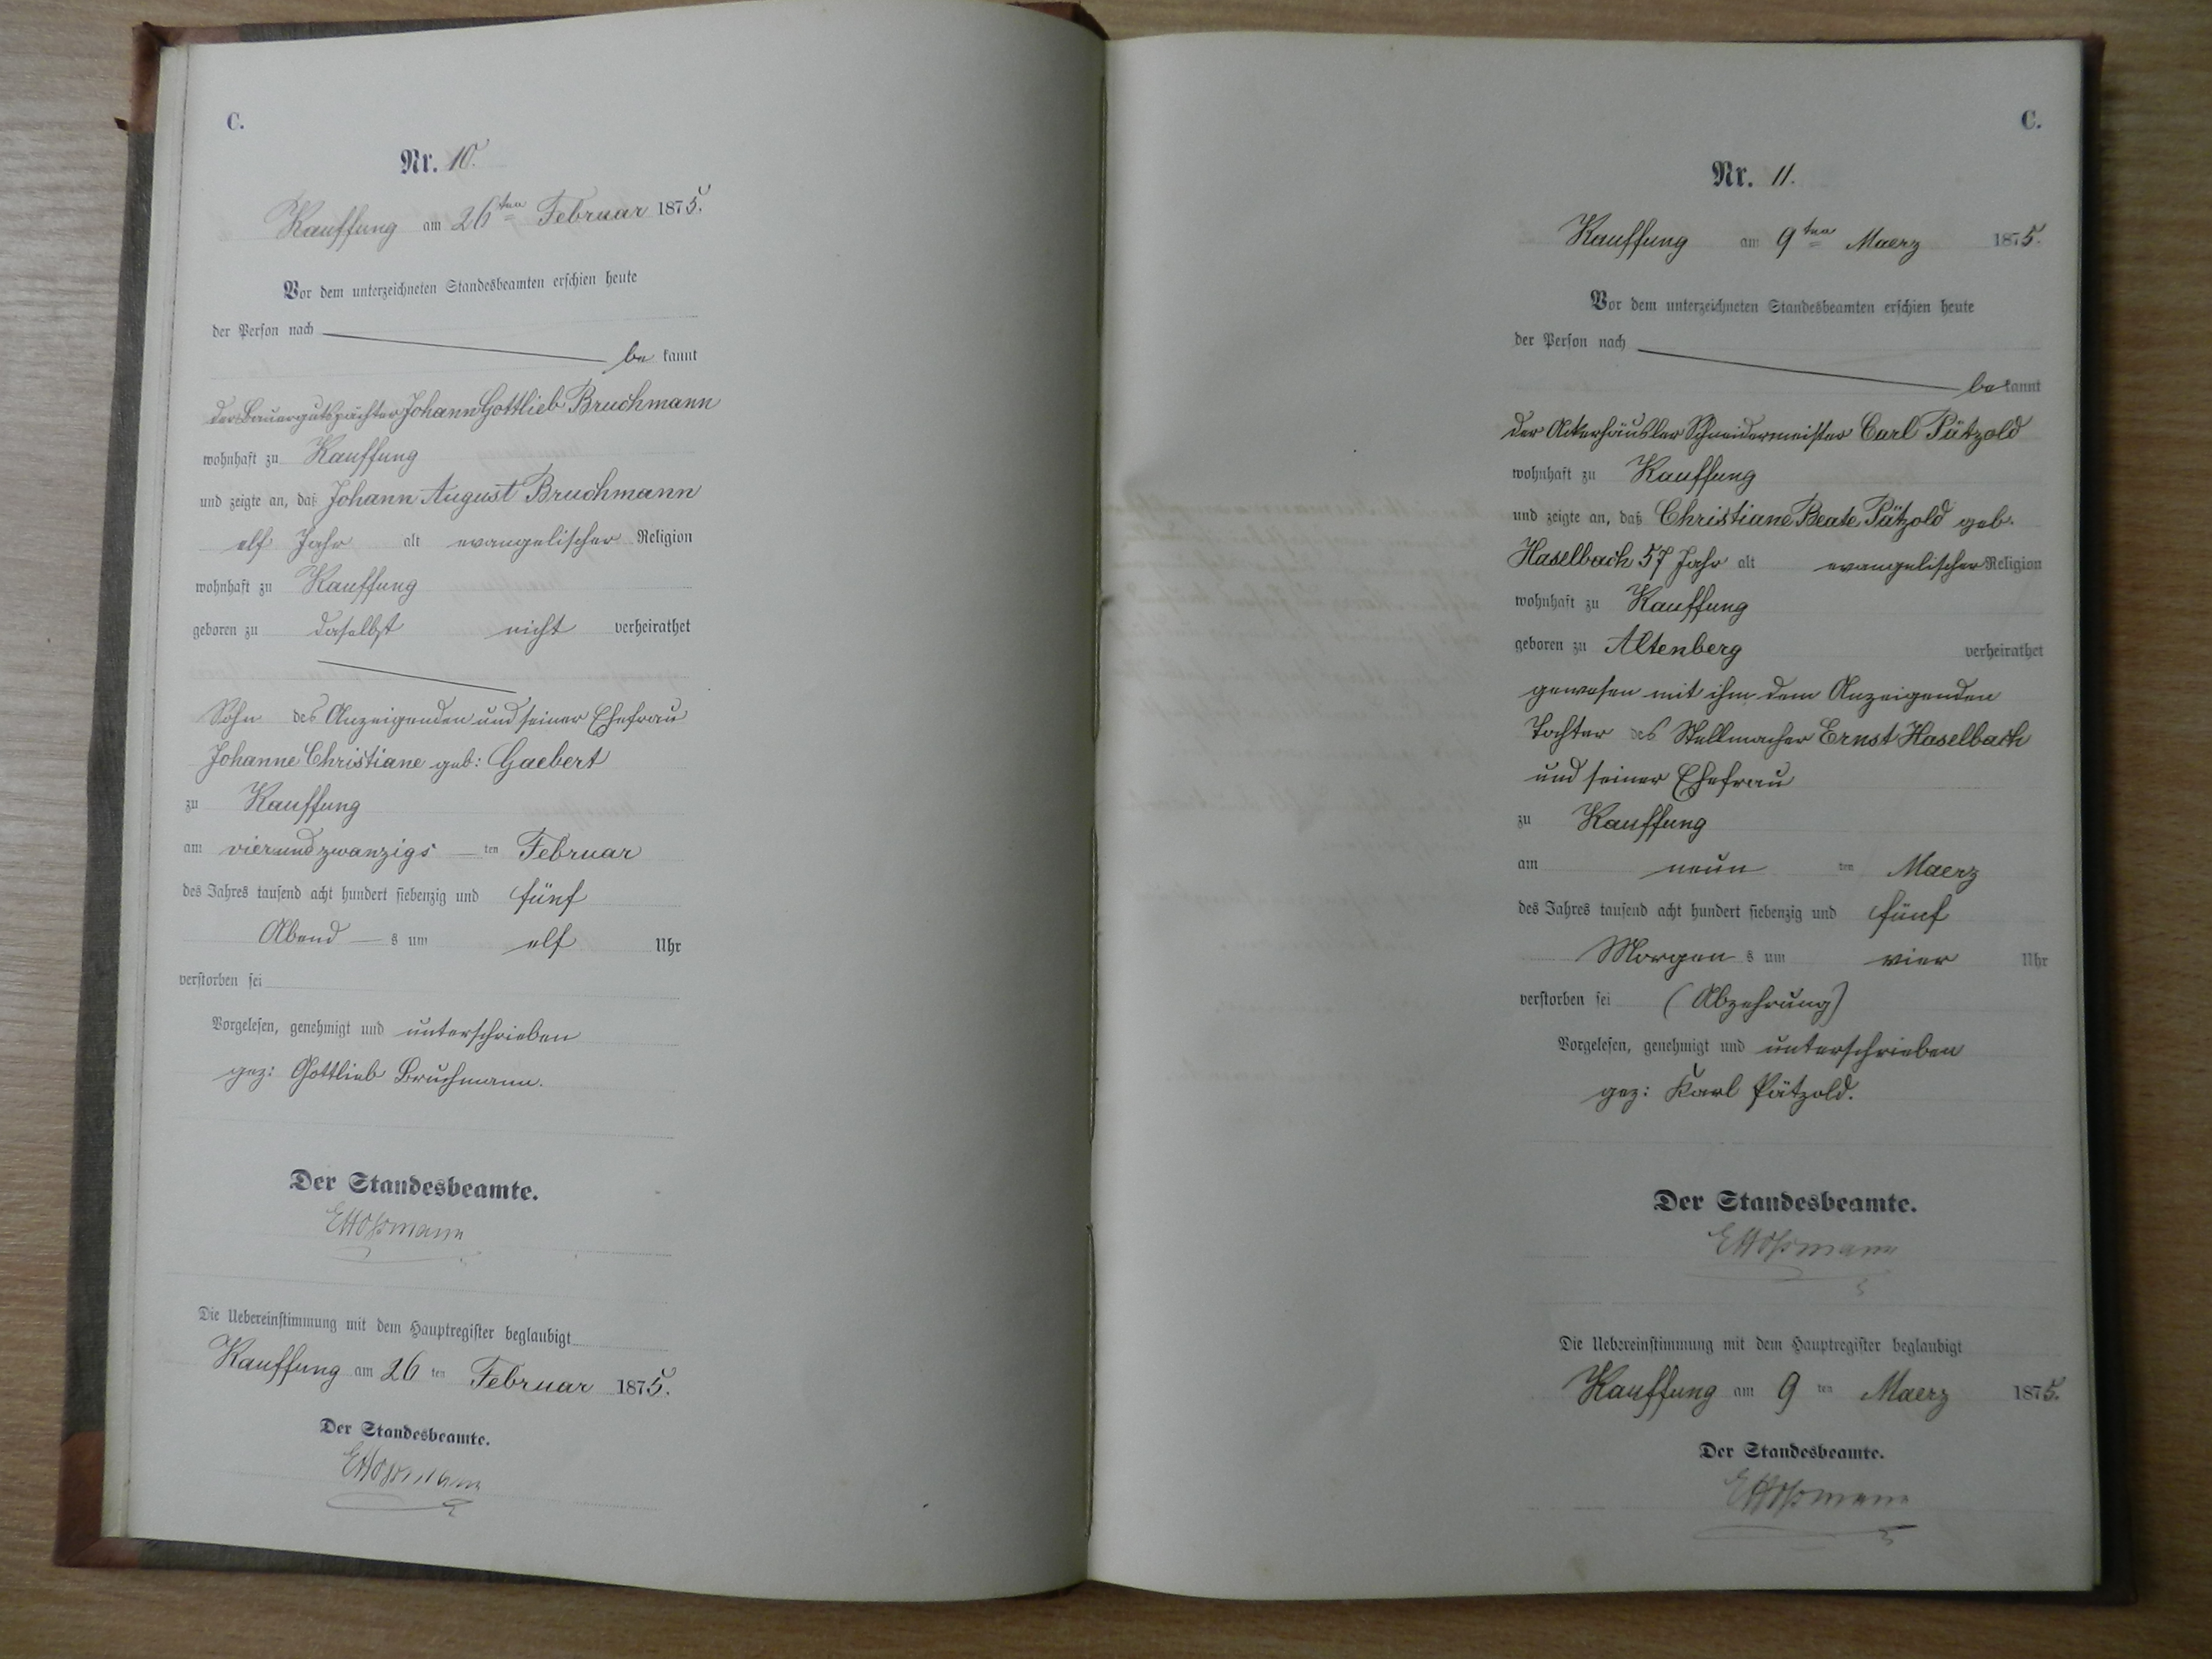 C.
Nr. 10.
Kauffung am 26ten Februar 1875.
Vor dem unterzeichneten Standesbeamten erschien heute
der Person nach
be kannt
der Bauergutspächter Johann Gottlieb Bruchmann
wohnhaft zu Kauffung
und zeigte an, daß Johann August Bruchmann
elf Jahr alt evangelischer Religion
wohnhaft zu Kauffung
geboren zu daselbst nicht verheirathet
Sohn des Anzeigenden und seiner Ehefrau
Johanne Christiane geb: Gaebert
zu Kauffung
am vierundzwanzigs ten Februar
des Jahres tausend acht hundert siebenzig und fünf
Abend s um elf Uhr
verstorben sei
Vorgelesen, genehmigt und unterschrieben
gez: Gottlieb Bruchmann.
Der Standesbeamte.
Die Uebereinstimmung mit dem Hauptregister beglaubigt
Kauffung am 26 ten Februar 1875.
Der Standesbeamte.
C.
Nr. 11.
Kauffung am 9ten Maerz 1875.
Vor dem unterzeichneten Standesbeamten erschien heute
der Person nach
be kannt
der Ackerhäusler Schneidermeister Carl Pätzold
wohnhaft zu Kauffung
und zeigte an, daß Christiane Beate Pätzold geb.
Haselbach 57 Jahr alt evangelischer Religion
wohnhaft zu Kauffung
geboren zu Altenberg verheirathet
gewesen mit ihm dem Anzeigenden
Tochter des Stellmacher Ernst Haselbach
und seiner Ehefrau
zu Kauffung
am neun ten Maerz
des Jahres tausend acht hundert siebenzig und fünf
Morgen s um vier Uhr
verstorben sei (Abzehrung)
Vorgelesen, genehmigt und unterschrieben
gez: Karl Pätzold.
Der Standesbeamte.
Die Uebereinstimmung mit dem Hauptregister beglaubigt
Kauffung am 9 ten Maerz 1875.
Der Standesbeamte.